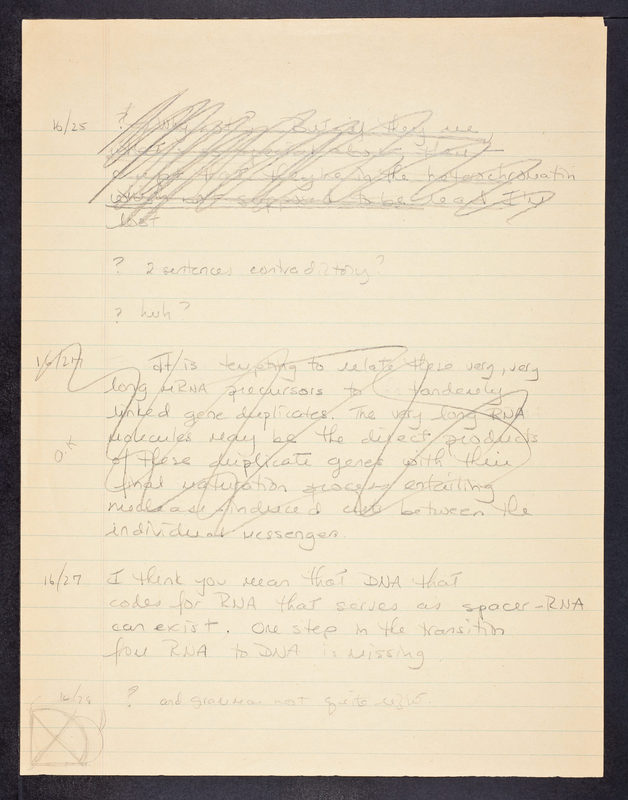 16/25 ? Why not? But if they are,
what about them -
that they're in the heterochromatin
not supposed to be read I'm
lost
? 2 sentences contradictory?
? huh?
16/27 It is tempting to relate these very, very
long mRNA precursors to tandemly
linked gene duplicates. The very long RNA
molecules may be the direct products
O.K of these duplicate genes with their
final maturation process entailing
nuclease-induced cuts between the
individual messenger.
16/27 I think you mean that DNA that
codes for RNA that serves as spacer-RNA
can exist. One step in the transition
from RNA to DNA is missing.
16/28 ? and grammar not quite